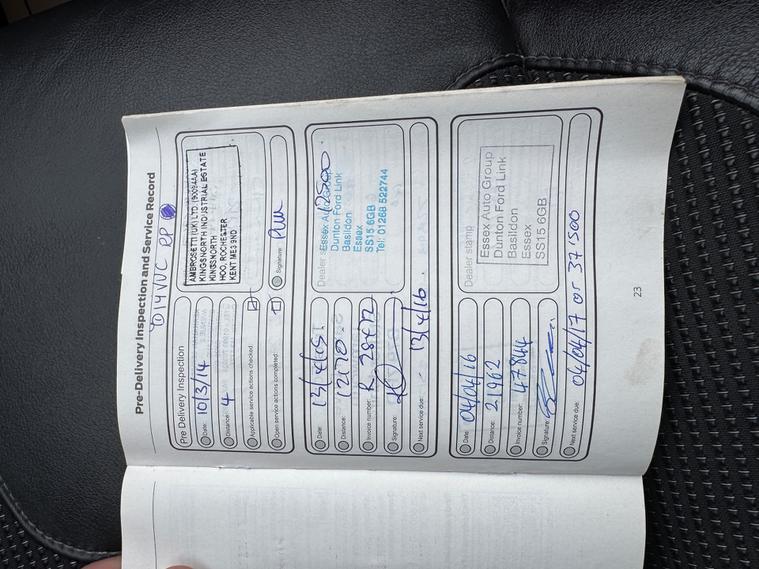 Pre-Delivery Inspection and Service Record
Pre Delivery Inspection
Date: 10/3/14
Distance: 4
Applicable service actions checked:
Open service actions completed:
AMBROSETTI (UK) LTD.
KINGSNORTH INDUSTRIAL ESTATE
KINGSNORTH
HOO, ROCHESTER
KENT ME3 9ND
Signature:
Date: 13/4/15
Distance: 12170
Invoice number:
Signature:
Next service due: 13/4/16.
Dealer
Essex Auto Group
Dunton Ford Link
Basildon
Essex
SS15 6GB
Tel: 01268 522744
12500
Date: 04/04/16
Distance: 21962
Invoice number: 47844
Signature:
Next service due: 04/04/17 or 37'500
Dealer stamp
Essex Auto Group
Dunton Ford Link
Basildon
Essex
SS15 6GB
23